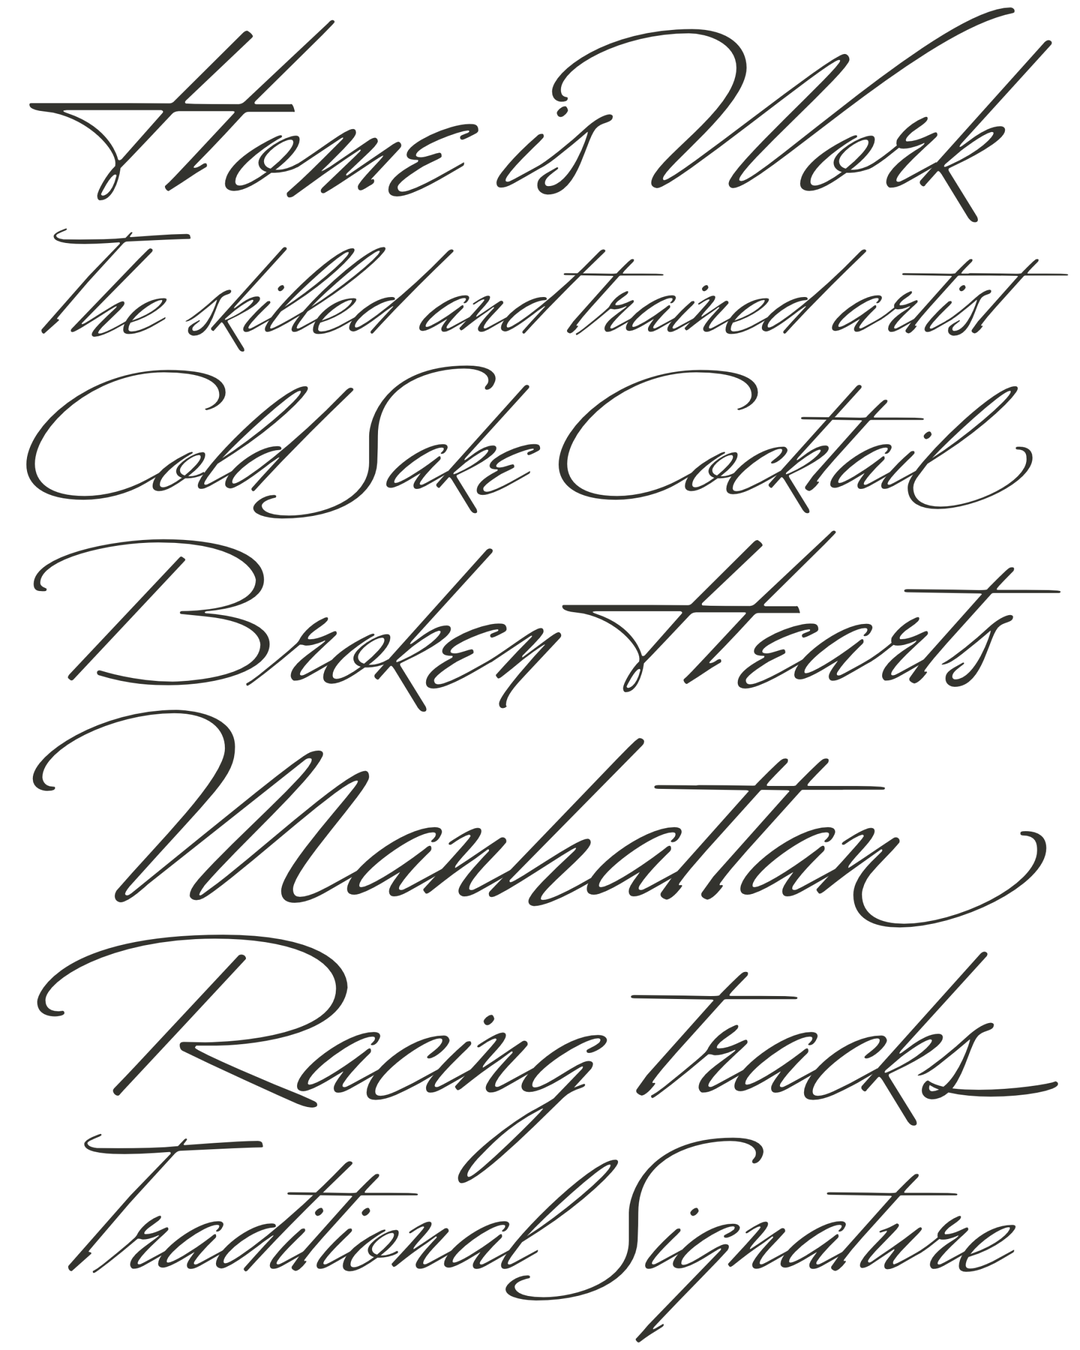 Home is Work
The skilled and trained artist
Cold Sake Cocktail
Broken Hearts
Manhattan
Racing tracks
Traditional Signature